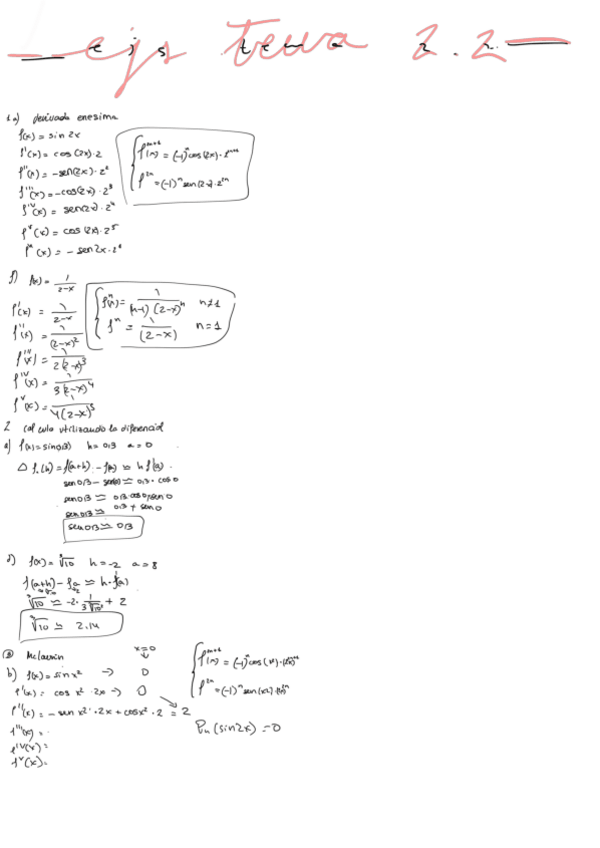 ejs tema 2.2
1 a) derivada enesima
f(x) = sin 2x
f'(x) = cos (2x)·2
f''(x) = -sen(2x)·2²
f'''(x) = -cos(2x)·2³
f^IV(x) = sen(2x)·2⁴
f^V(x) = cos (2x)·2⁵
f^n(x) = - sen 2x·2⁶
(x) = (-1)^n cos(2x)·2^2n+1
f^2n = (-1)^n sen(2x)·2^2n
f) f(x) = 1/(2-x)
f'(x) = 1/(2-x)
f''(x) = 1/(2-x)²
f'''(x) = 1/2(2-x)³
f^IV(x) = 1/3(2-x)⁴
f^V(x) = 1/4(2-x)⁵
f^n(x) = 1/(n-1)(2-x)^n n≠1
f^n = 1/(2-x) n=1
2 calculo utilizando la diferencial
a) f(x) = sin 0'3 h = 0'3 a = 0
Δf(h) = f(a+h) - f(a) ≃ h f'(a)
sen 0'3 - sen(0) ≃ 0'3·cos 0
sen 0'3 ≃ 0'3·cos 0 + sen 0
sen 0'3 ≃ 0'3 + sen 0
sen 0'3 ≃ 0'3
d) f(x) = ³√10 h = -2 a = 8
f(a+h) - fa ≃ h·f'(a)
³√10 ≃ -2· + 2
³√10 ≃ 2.14
③ McLaurin x=0
b) f(x) = sin x² → 0
f'(x) = cos x²·2x → 0
f''(x) = - sen x²·2x + cos x²·2 = 2
f'''(x) =
f^IV(x) =
f^V(x) =
(x) = (-1)^n cos(x²)·(2x)^n
f^2n = (-1)^n sen(x2)·(2x)^n
Pn(sin2x) = 0